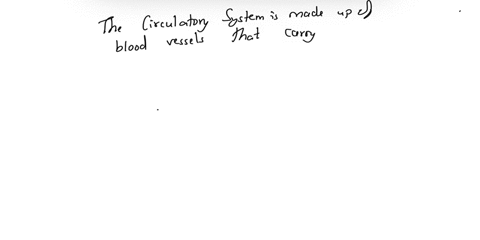 The Circulatory System is made up of
blood vessels that carry